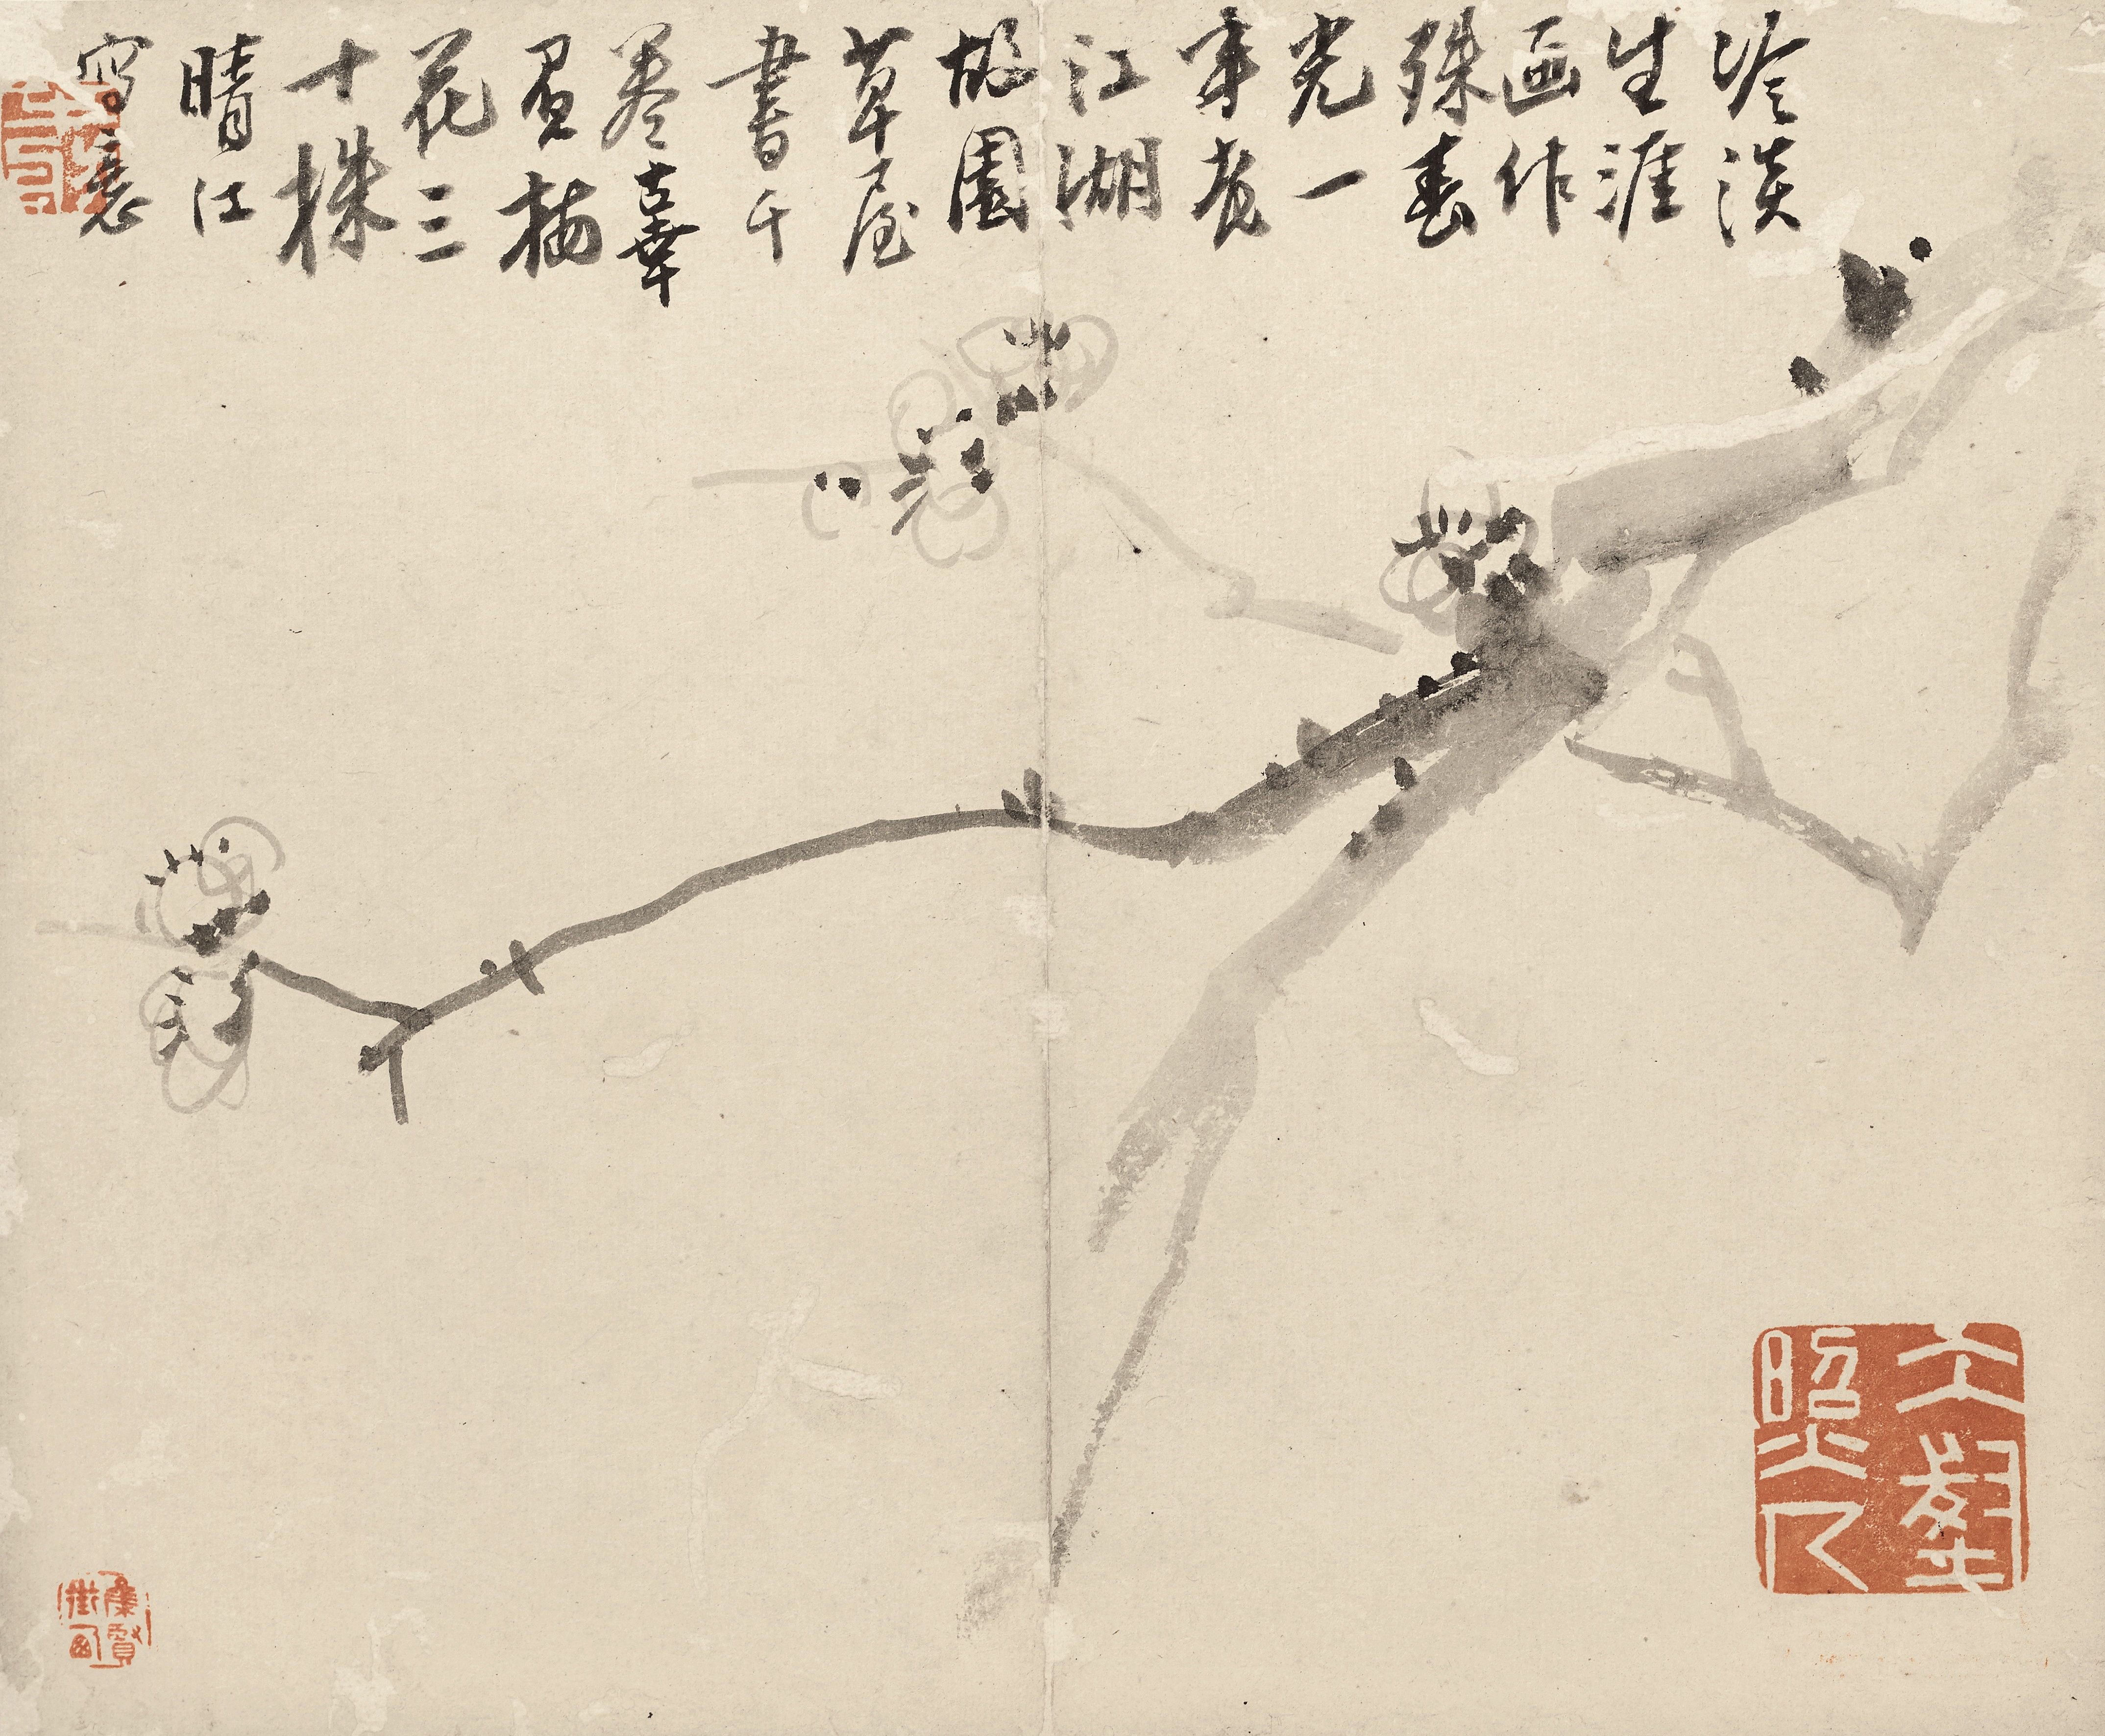 冷淡
生涯
画作
殊春
光一
年老
江湖
故園
草屋
書千
卷辜
負梅
花三
十株
晴江
寫意